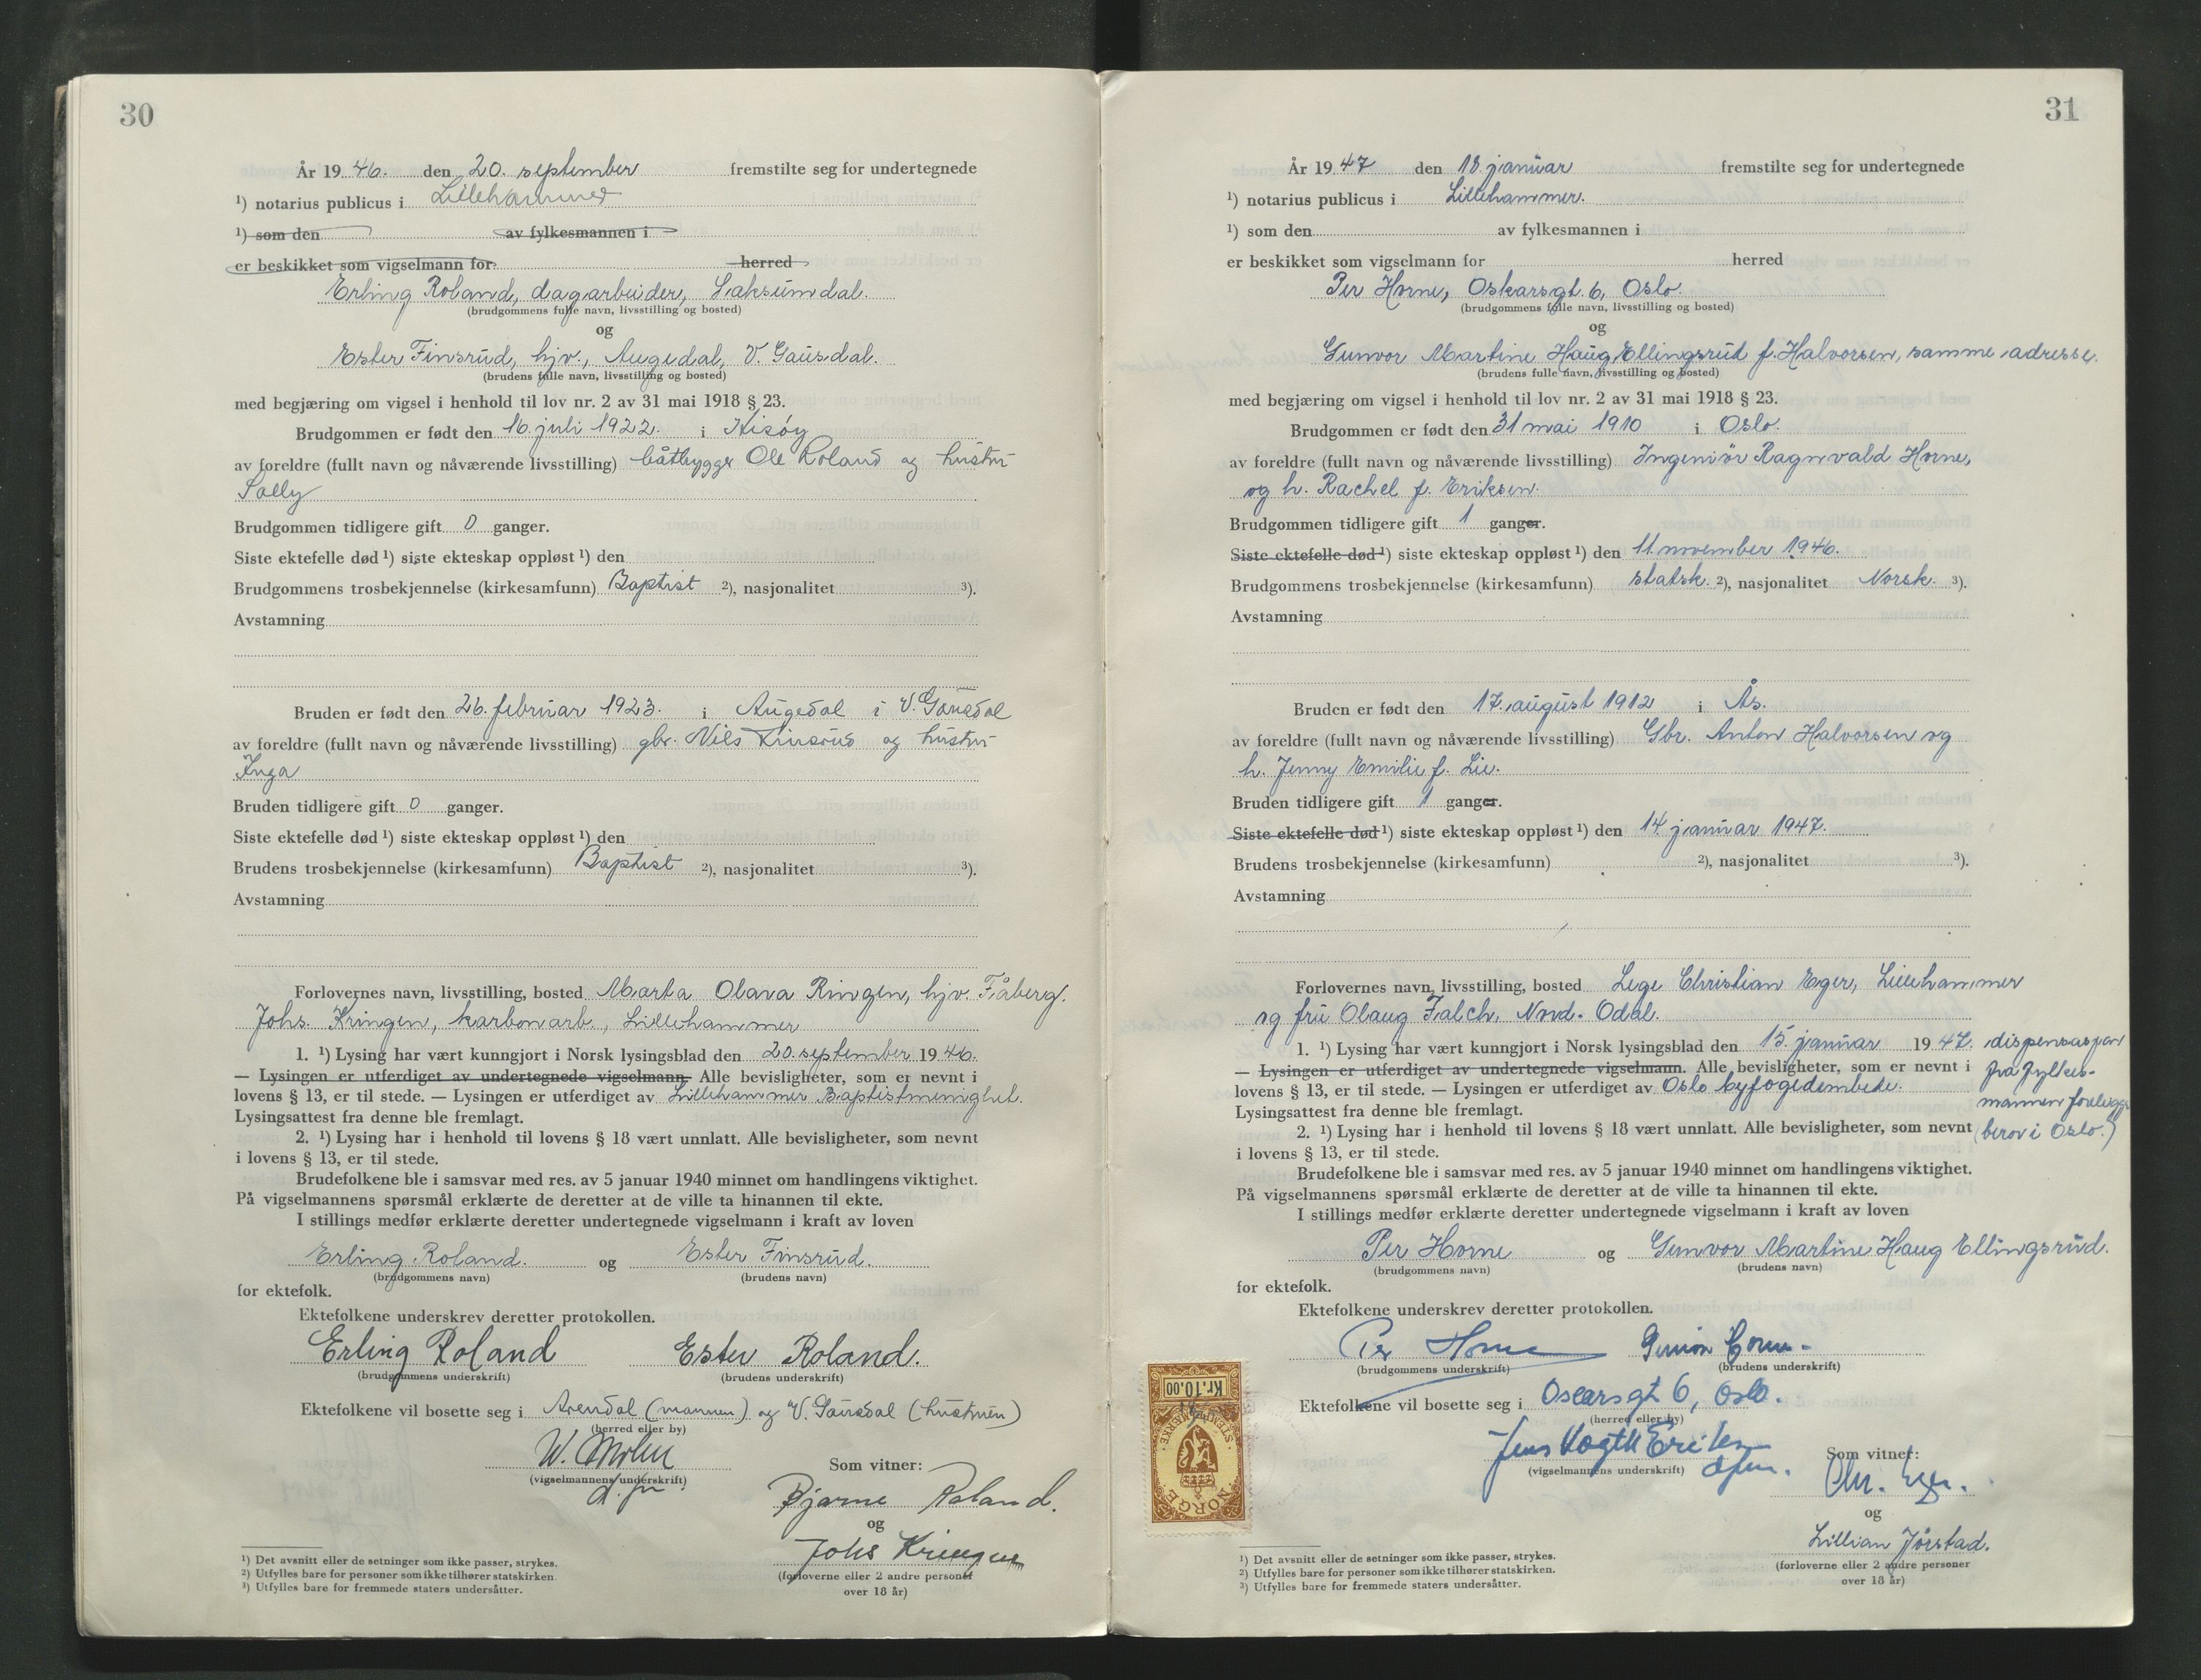 30
År 19 46. den 20. september fremstilte seg for undertegnede
¹) notarius publicus i Lillehammer
¹) som den av fylkesmannen i
er beskikket som vigselmann for herred
Erling Roland, dagarbeider, Saksumdal.
(brudgommens fulle navn, livsstilling og bosted)
og
Ester Finsrud, hjv., Augedal, V. Gausdal.
(brudens fulle navn, livsstilling og bosted)
med begjæring om vigsel i henhold til lov nr. 2 av 31 mai 1918 § 23.
Brudgommen er født den 16. juli 1922. i Hisøy
av foreldre (fullt navn og nåværende livsstilling) båtbygger Ole Roland og hustru
Solly
Brudgommen tidligere gift 0 ganger.
Siste ektefelle død ¹) siste ekteskap oppløst ¹) den
Brudgommens trosbekjennelse (kirkesamfunn) Baptist ²), nasjonalitet ³).
Avstamning
Bruden er født den 26. februar 1923. i Augedal i V. Gausdal
av foreldre (fullt navn og nåværende livsstilling) gbr. Nils Finsrud og hustru
Inga
Bruden tidligere gift 0 ganger.
Siste ektefelle død ¹) siste ekteskap oppløst ¹) den
Brudens trosbekjennelse (kirkesamfunn) Baptist ²), nasjonalitet ³).
Avstamning
Forlovernes navn, livsstilling, bosted Marta Olava Ringen, hjv. Fåberg.
Johs. Kringen, karbonarb., Lillehammer
1. ¹) Lysing har vært kunngjort i Norsk lysingsblad den 20. september 19 46.
— Lysingen er utferdiget av undertegnede vigselmann. Alle bevisligheter, som er nevnt i
lovens § 13, er til stede. — Lysingen er utferdiget av Lillehammer Baptistmenighet.
Lysingsattest fra denne ble fremlagt.
2. ¹) Lysing har i henhold til lovens § 18 vært unnlatt. Alle bevisligheter, som nevnt
i lovens § 13, er til stede.
Brudefolkene ble i samsvar med res. av 5 januar 1940 minnet om handlingens viktighet.
På vigselmannens spørsmål erklærte de deretter at de ville ta hinannen til ekte.
I stillings medfør erklærte deretter undertegnede vigselmann i kraft av loven
Erling Roland. og Ester Finsrud.
(brudgommens navn) (brudens navn)
for ektefolk.
Ektefolkene underskrev deretter protokollen.
Erling Roland Ester Roland.
(brudgommens underskrift) (brudens underskrift)
Ektefolkene vil bosette seg i Arendal (mannen) og V. Gausdal (hustruen)
(herred eller by)
(vigselmannens underskrift) Som vitner:
Bjarne Roland.
og
Johs Kringen
(forloverne eller 2 andre personer
over 18 år)
¹) Det avsnitt eller de setninger som ikke passer, strykes.
²) Utfylles bare for personer som ikke tilhører statskirken.
³) Utfylles bare for fremmede staters undersåtter.
31
År 19 47 den 18. januar fremstilte seg for undertegnede
¹) notarius publicus i Lillehammer.
¹) som den av fylkesmannen i
er beskikket som vigselmann for herred
Per Horne, Oskarsgt. 6, Oslo.
(brudgommens fulle navn, livsstilling og bosted)
og
Gunvor Martine Haug Ellingsrud f. Halvorsen, samme adresse.
(brudens fulle navn, livsstilling og bosted)
med begjæring om vigsel i henhold til lov nr. 2 av 31 mai 1918 § 23.
Brudgommen er født den 31 mai 1910 i Oslo.
av foreldre (fullt navn og nåværende livsstilling) Ingeniør Ragnvald Horne,
og h. Rachel f. Eriksen.
Brudgommen tidligere gift 1 ganger.
Siste ektefelle død ¹) siste ekteskap oppløst ¹) den 11. november 1946.
Brudgommens trosbekjennelse (kirkesamfunn) statsk. ²), nasjonalitet Norsk. ³).
Avstamning
Bruden er født den 17. august 1912 i Ås.
av foreldre (fullt navn og nåværende livsstilling) Gbr. Anton Halvorsen og
h. Jenny Emilie f. Lie.
Bruden tidligere gift 1 ganger.
Siste ektefelle død ¹) siste ekteskap oppløst ¹) den 14. januar 1947.
Brudens trosbekjennelse (kirkesamfunn) ²), nasjonalitet ³).
Avstamning
Forlovernes navn, livsstilling, bosted Lege Christian Eger, Lillehammer
og fru Olaug Falch, Nord-Odal.
1. ¹) Lysing har vært kunngjort i Norsk lysingsblad den 15. januar 19 47. dispensasjon
— Lysingen er utferdiget av undertegnede vigselmann. Alle bevisligheter, som er nevnt i fra fylkes-
lovens § 13, er til stede. — Lysingen er utferdiget av Oslo byfogedembede. mannen foreligger
Lysingsattest fra denne ble fremlagt.
2. ¹) Lysing har i henhold til lovens § 18 vært unnlatt. Alle bevisligheter, som nevnt (beror i Oslo.)
i lovens § 13, er til stede.
Brudefolkene ble i samsvar med res. av 5 januar 1940 minnet om handlingens viktighet.
På vigselmannens spørsmål erklærte de deretter at de ville ta hinannen til ekte.
I stillings medfør erklærte deretter undertegnede vigselmann i kraft av loven
Per Horne og Gunvor Martine Haug Ellingsrud.
(brudgommens navn) (brudens navn)
for ektefolk.
Ektefolkene underskrev deretter protokollen.
Per Horne Gunvor Horne
(brudgommens underskrift) (brudens underskrift)
Ektefolkene vil bosette seg i Oscarsgt 6, Oslo.
(herred eller by)
Jens Vogth Eriksen Som vitner:
(vigselmannens underskrift) dfm.
Chr. Eger.
og
Lillian Jørstad.
(forloverne eller 2 andre personer
over 18 år)
Kr. 10.00
STEMPELMERKE
NORGE
¹) Det avsnitt eller de setninger som ikke passer, strykes.
²) Utfylles bare for personer som ikke tilhører statskirken.
³) Utfylles bare for fremmede staters undersåtter.